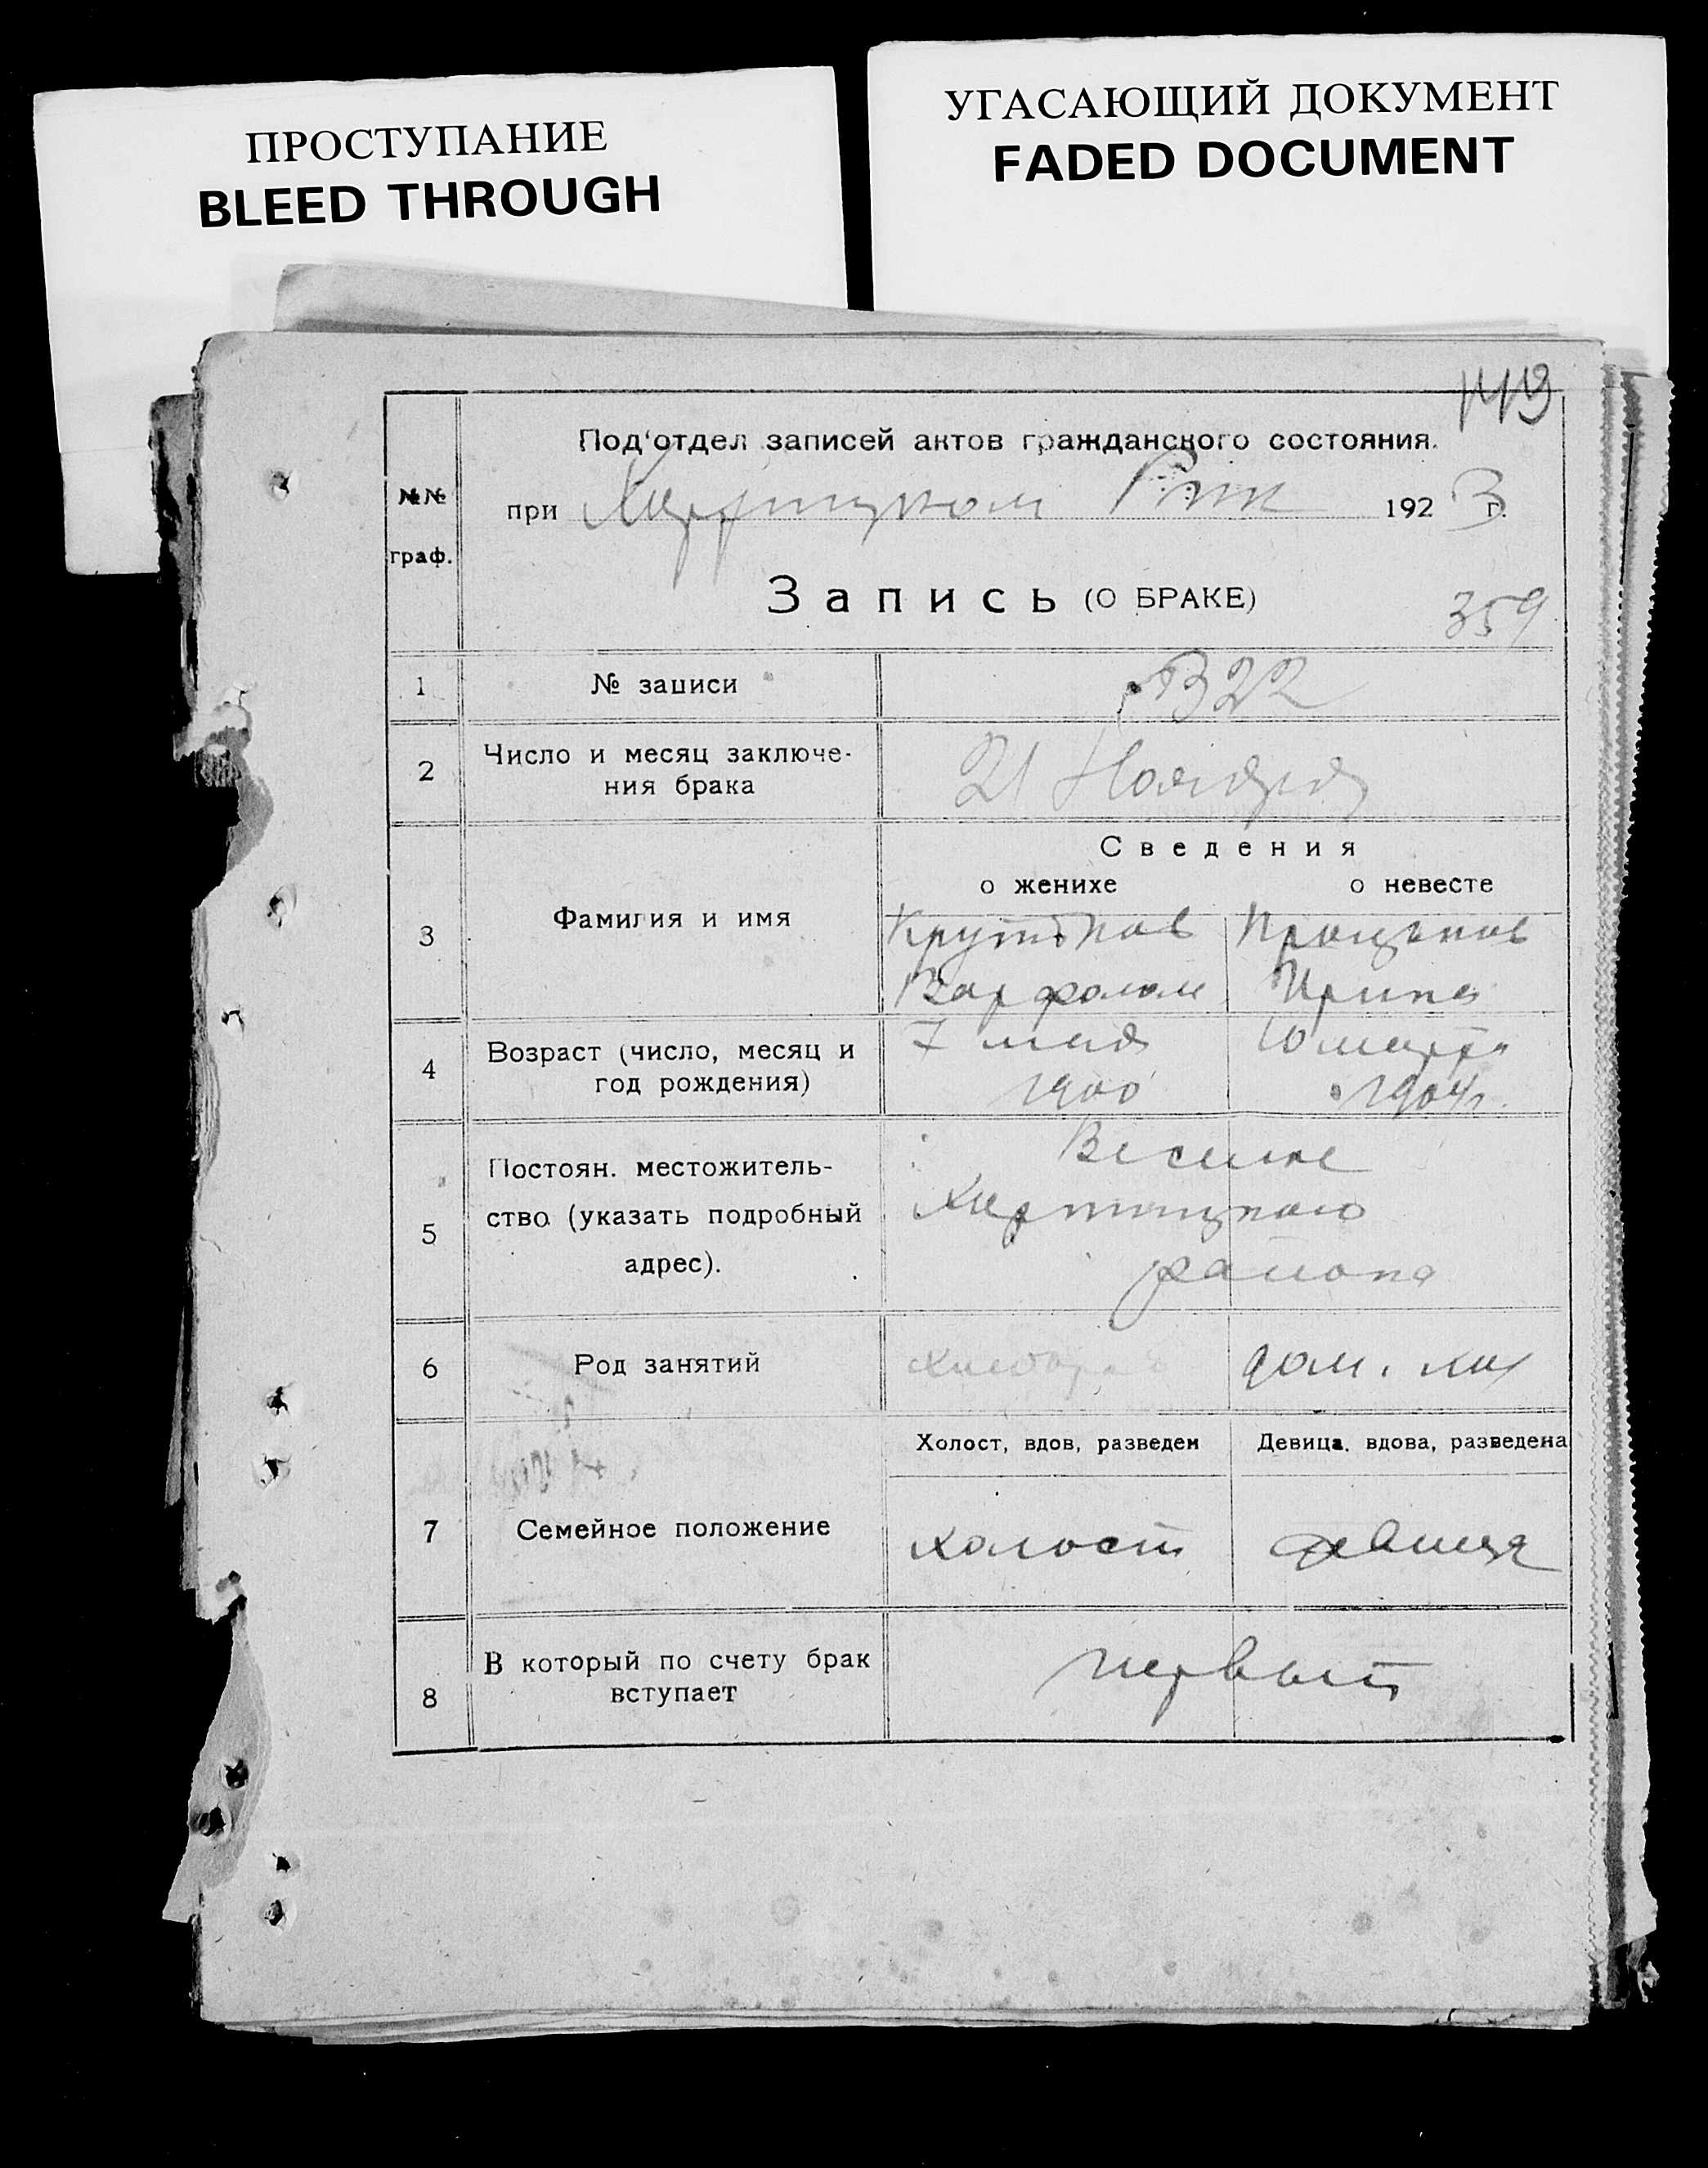 ПРОСТУПАНИЕ
BLEED THROUGH
УГАСАЮЩИЙ ДОКУМЕНТ
FADED DOCUMENT
Под'отдел записей актов гражданского состояния.
№№ граф.
при Хортицком Рик 1923 г.
Запись (О БРАКЕ)
359
1 № записи 322
2 Число и месяц заключе-
ния брака 21 Ноября
Сведения
о женихе о невесте
3 Фамилия и имя
Варфолом Ирина
4 Возраст (число, месяц и
год рождения)
7 мая 10 марта
1900 1904 г.
5 Постоян. местожитель-
ство (указать подробный
адрес).
Хортицкого
района
6 Род занятий хлебороб дом. хоз
Холост, вдов, разведен Девица, вдова, разведена
7 Семейное положение холост девица
8 В который по счету брак
вступает первый